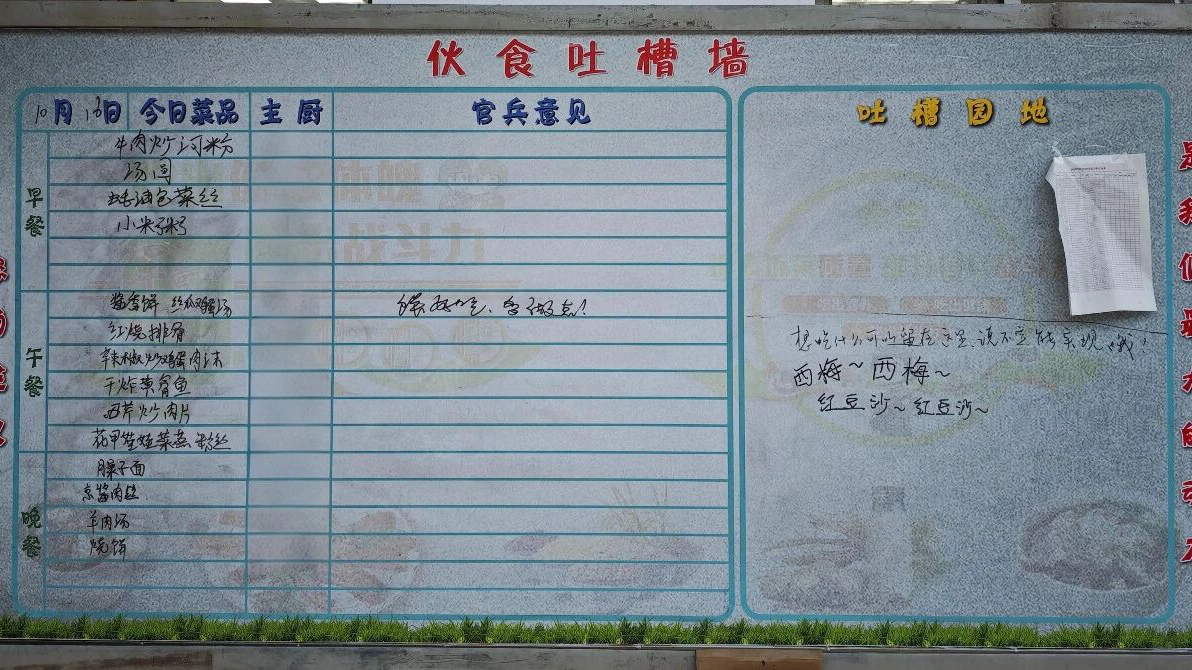 伙食吐槽墙
10月13日 今日菜品 主厨 官兵意见
早餐
牛肉炒河粉
汤圆
蚝油包菜丝
小米粥
午餐
酱香饼 丝瓜鸡蛋汤
红烧排骨
辣椒炒鸡蛋肉沫
干炸带鱼
西芹炒肉片
花甲娃娃菜蒸粉丝
晚餐
臊子面
京酱肉丝
羊肉汤
烧饼
多做点!
战斗力
吐槽园地
想吃什么可以留在这里,说不定能实现哦!
西梅~西梅~
红豆沙~红豆沙~
是我们最大的动力